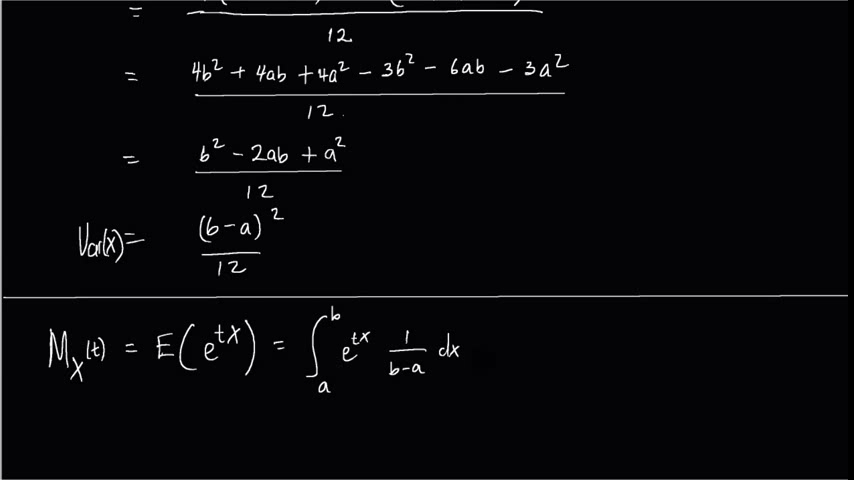 = 12
= 4b² + 4ab + 4a² - 3b² - 6ab - 3a² / 12.
= b² - 2ab + a² / 12
Var(X) = (b-a)² / 12
M_X(t) = E(e^{tX}) = ∫_a^b e^{tx} 1/(b-a) dx